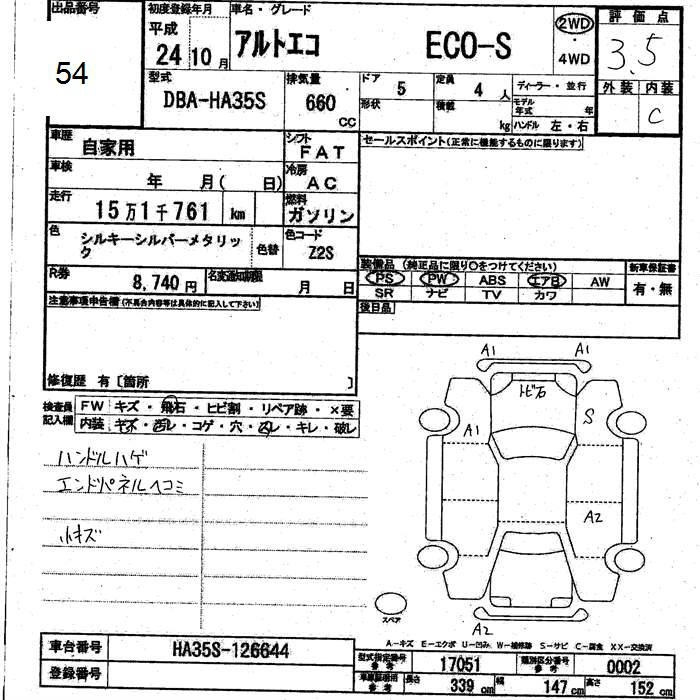 出品番号
54
初度登録年月
平成
24 10 月
車名・グレード
アルトエコ ECO-S
2WD
・
4WD
評価点
3.5
外装 内装
C
型式
DBA-HA35S
排気量
660
CC
ドア
5
定員
4 人
形状
積載
kg
ディーラー・並行
モデル
年式 年
ハンドル 左・右
車歴
自家用
シフト
FAT
セールスポイント(正常に機能するものに限ります)
車検
年 月( 日)
冷房
AC
走行
15万1千761 km
燃料
ガソリン
色
シルキーシルバーメタリック
色替
色コード
Z2S
R券
8,740円
名変通知期限
月 日
装備品 (純正品に限り○をつけてください)
PS PW ABS エアB AW
SR ナビ TV カワ
新車保証書
有・無
後日品
注意事項申告欄(不具合内容等は具体的に記入して下さい)
修復歴 有〔箇所 〕
検査員
記入欄
FW キズ・飛石・ヒビ割・リペア跡・×要
内装 キズ・汚レ・コゲ・穴・スレ・キレ・破レ
ハンドルハゲ
エンドパネルヘコミ
小キズ
A1
A1
トビ石
A1
S
A2
A2
スペア
A-キズ E-エクボ U-凹み W-補修跡 S-サビ C-腐食 XX-交換済
車台番号
HA35S-126644
登録番号
型式指定番号
参考
17051
類別区分番号
参考
0002
車庫証明用
参考
長さ
339 cm
幅
147 cm
高さ
152 cm